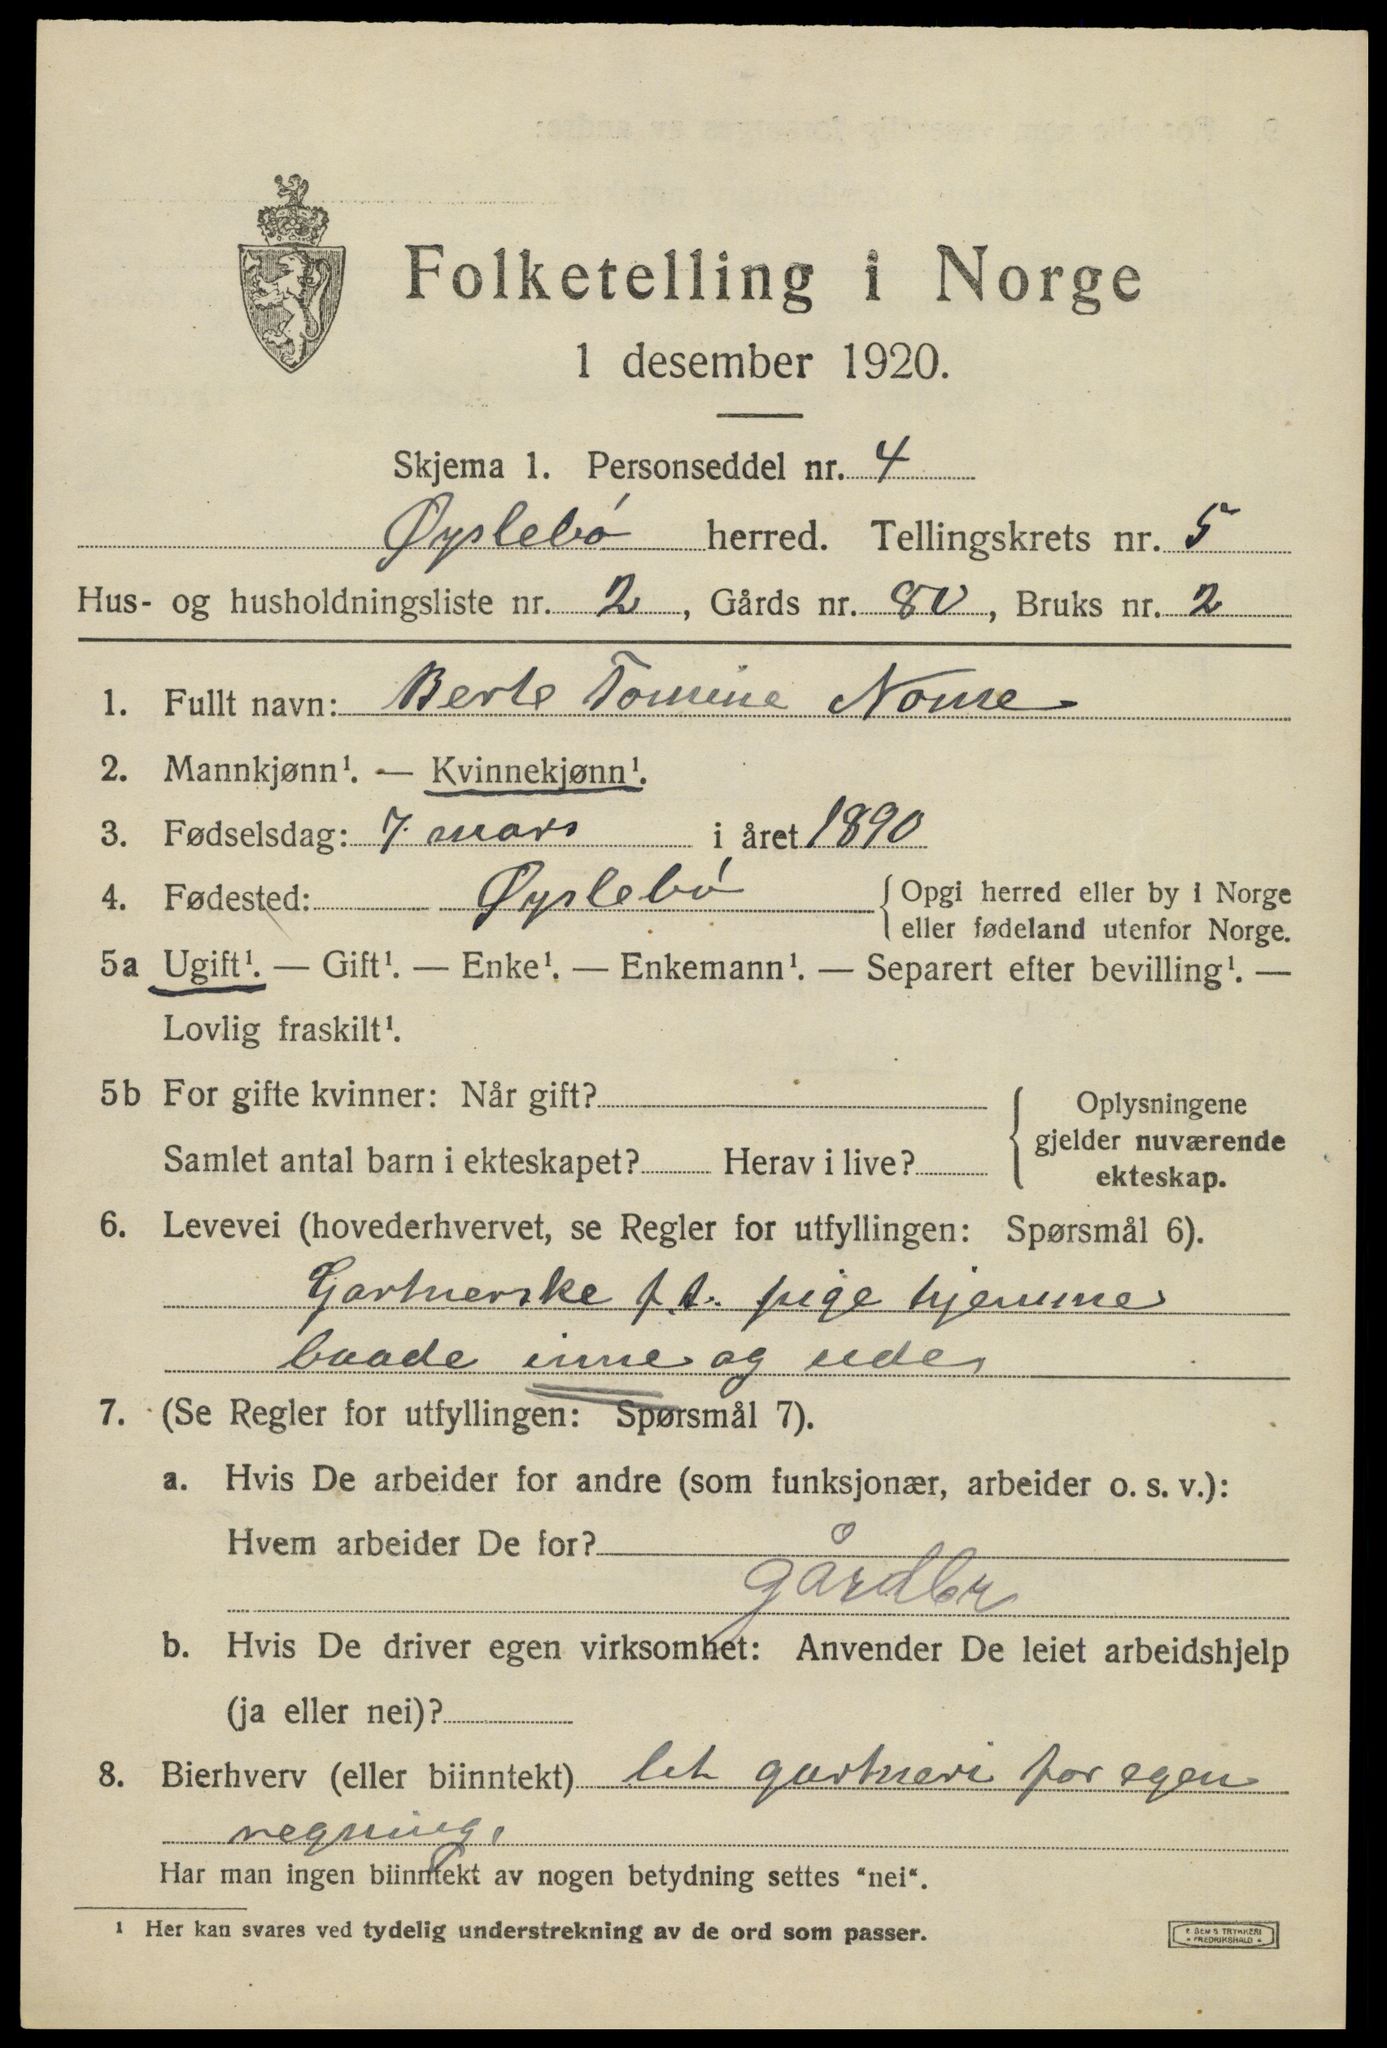 Folketelling i Norge
1 desember 1920.
Skjema 1. Personseddel nr. 4
Øyslebø herred. Tellingskrets nr. 5
Hus- og husholdningsliste nr. 2, Gårds nr. 80, Bruks nr. 2
1. Fullt navn: Berte Tomine Nome
2. Mannkjønn¹. — Kvinnekjønn¹.
3. Fødselsdag: 7. mars i året 1890
4. Fødested: Øyslebø { Opgi herred eller by i Norge
eller fødeland utenfor Norge.
5a Ugift¹. — Gift¹. — Enke¹. — Enkemann¹. — Separert efter bevilling¹. —
Lovlig fraskilt¹.
5b For gifte kvinner: Når gift?
Samlet antal barn i ekteskapet? Herav i live?
{ Oplysningene
gjelder nuværende
ekteskap.
6. Levevei (hovederhvervet, se Regler for utfyllingen: Spørsmål 6).
Gartnerske f.t. pige hjemme
baade inne og ude
7. (Se Regler for utfyllingen: Spørsmål 7).
a. Hvis De arbeider for andre (som funksjonær, arbeider o. s. v.):
Hvem arbeider De for?
gårdbr
b. Hvis De driver egen virksomhet: Anvender De leiet arbeidshjelp
(ja eller nei)?
8. Bierhverv (eller biinntekt) let gartneri for egen
regning.
Har man ingen biinntekt av nogen betydning settes "nei".
¹ Her kan svares ved tydelig understrekning av de ord som passer.
SEM'S TRYKKERI
FREDRIKSHALD